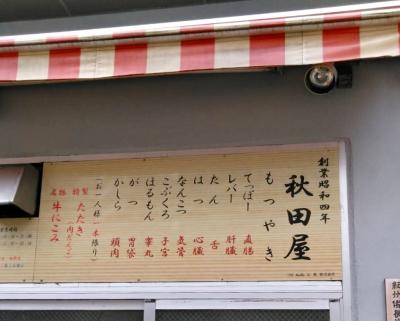 創業昭和四年
秋田屋
もつやき
てっぽー 直腸
レバー 肝臓
たん 舌
はつ 心臓
なんこつ 気管
こぶくろ 子宮
ほるもん 睾丸
がつ 胃袋
かしら 頬肉
(お一人様一本限り)
特製 たたき (肉だんご)
名物 牛にこみ